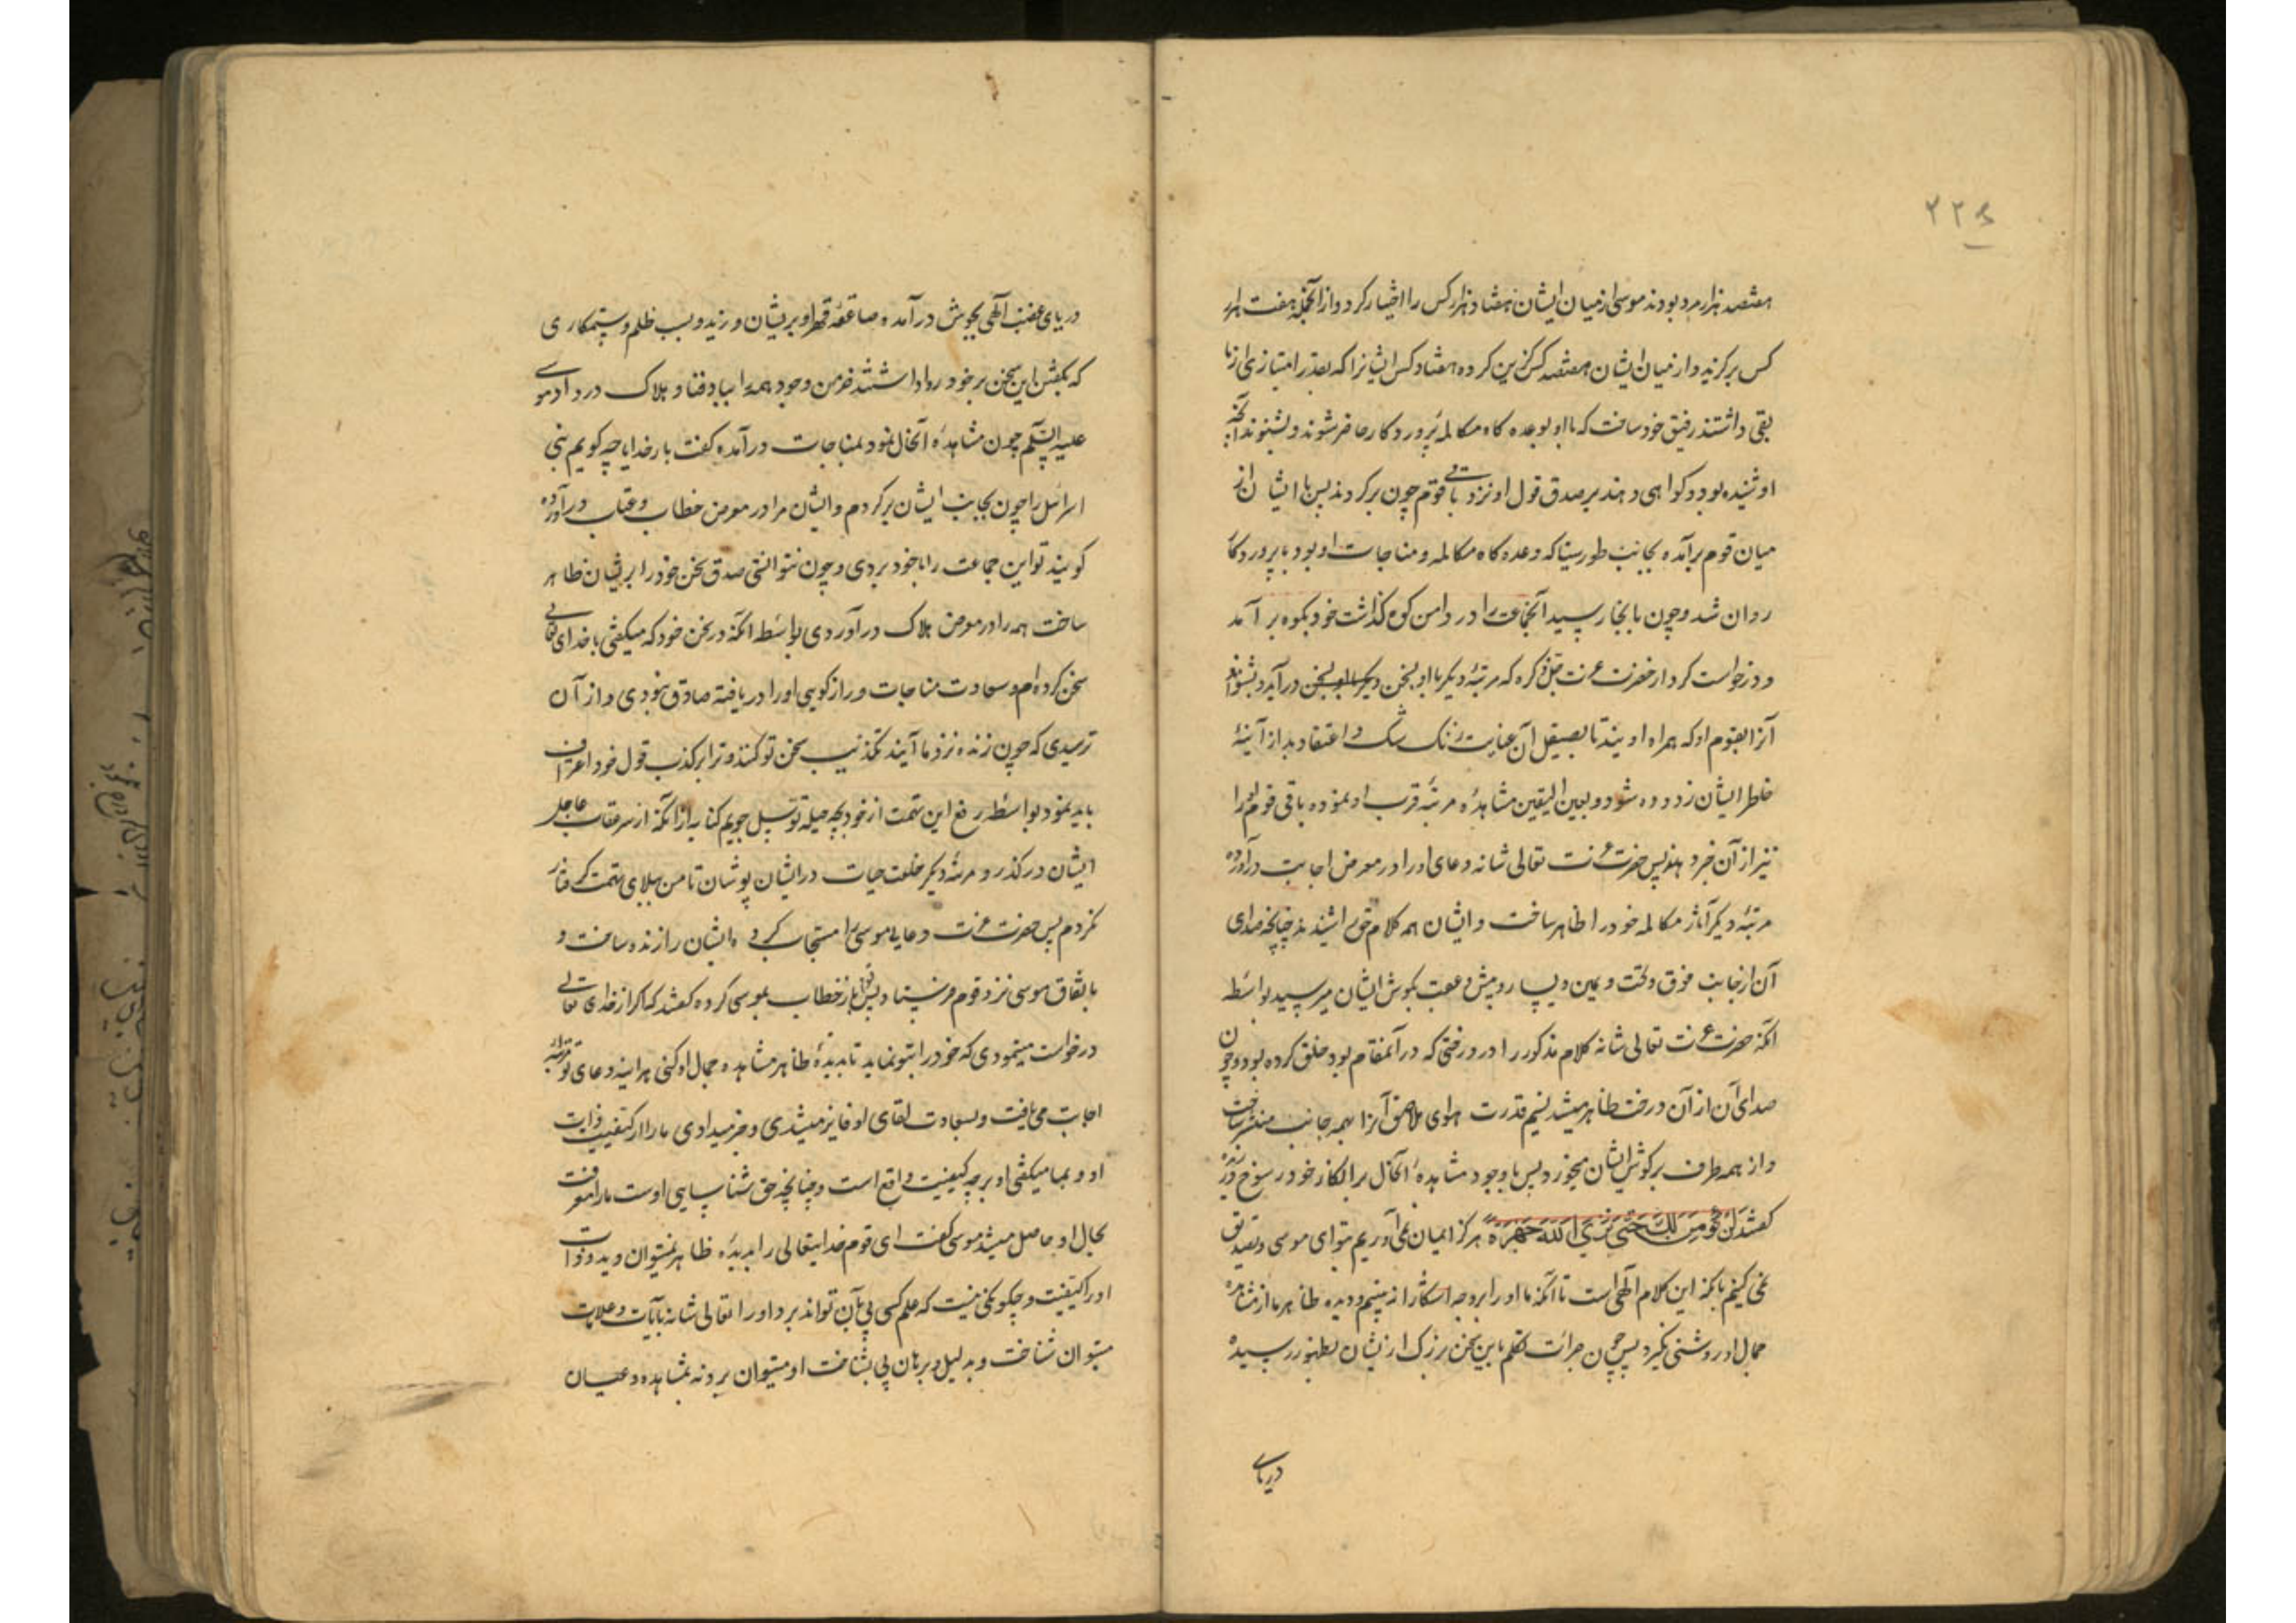 ۲۲۶
هفتصد هزار مرد بودند موسی از میان ایشان هفتاد هزار کس را اختیار کرد و از آنجمله هفت هزار
کس برگزید و از میان ایشان هفتصد کس گزین کرده هفتاد کس ایشانرا که بقدر امتیازی از ما
بقی داشتند رفیق خود ساخت که با او بوعده کاه مکالمه پرورد کار حاضر شوند و بشنوند آنچه
او شنیده بود و کواهی دهند بر صدق قول او نزد باقی قوم چون بر کردند پس با ایشان از
میان قوم برآمده بجانب طور سینا که وعده کاه مکالمه و مناجات او بود با پروردکا
روان شد و چون بانجا رسید آنجماعت را در دامن کوه گذاشت خود بکوه بر آمد
و درخواست کرد از حضرت عزت جل ذکره که مرتبهٔ دیگر با او بسخن در آید و بشنواند
آنرا بقوم او که همراه اویند تا بصیقل آن عنایت زنک شک و اعتقاد بد از آینهٔ
خاطر ایشان زدوده شود و بعین الیقین مشاهدهٔ مرتبهٔ قرب او نموده باقی قوم او را
نیز از آن خبر دهند پس حضرت عزت تعالی شانه دعای او را در معرض اجابت درآورده
مرتبهٔ دیگر آثار مکالمه خود را ظاهر ساخت و ایشان همه کلام حق را شنیدند چنانچه صدای
آن از جانب فوق و تحت و یمین و یسار و پیش و عقب بکوش ایشان میرسید بواسطه
آنکه حضرت عزت تعالی شانه کلام مذکور را در درختی که در آنمقام بود خلق کرده بود و چون
صدای آن از آن درخت ظاهر میشد نسیم قدرت هوای ملاصق آنرا بهمه جانب منتشر ساخت
و از همه طرف بر کوش ایشان میخورد پس با وجود مشاهدهٔ آنحال بر انکار خود رسوخ ورزیده
کفتند لَنْ نُؤْمِنَ لَكَ حَتَّى نَرَى اللَّهَ جَهْرَةً هرکز ایمان نمی آوریم بتو ای موسی و تصدیق
نمی کنیم بانکه این کلام آلهی است تا آنکه ما او را بر وجه آشکارا نه بینیم و دیده ظاهر ما از مشاهده
جمال او روشنی نکیرد پس چون جرات تکلم باین سخن بزرک از ایشان بظهور رسیده
دریای
دریای غضب آلهی بجوش در آمده صاعقه قهر او بر ایشان وزید و بسبب ظلم و ستمکاری
که بکفتن این سخن بر خود روا داشتند خرمن وجود همه را بباد فنا و هلاک در داد موسی
علیه السّلم چون مشاهدهٔ آنحال نمود بمناجات در آمده کفت بار خدایا چه کویم بنی
اسرائیل را چون بجانب ایشان برکردم و ایشان مرا در معرض خطاب و عتاب در آورده
کویند تو این جماعت را با خود بردی و چون نتوانستی صدق سخن خود را بر ایشان ظاهر
ساخت همه را در معرض هلاک در آوردی بواسطه آنکه در سخن خود که میکفتی با خدای تعالی
سخن کرده ام و سعادت مناجات و راز کویی او را دریافته صادق نبودی و از آن
ترسیدی که چون زنده نزد ما آیند تکذیب سخن تو کنند و ترا بر کذب قول خود اعتراف
باید نمود بواسطه رفع این تهمت از خود بچه حیله توسل جویم کنایه از آنکه از سر عقاب عاجل
ایشان در گذر و مرتبهٔ دیگر خلعت حیات در ایشان پوشان تا من ببلای تهمت گرفتار
نکردم پس حضرت عزت دعای موسی را مستجاب کرده ایشان را زنده ساخت و
باتفاق موسی نزد قوم فرستاد پس آنها باز خطاب بموسی کرده کفتند که اکر از خدای تعالی
درخواست مینمودی که خود را بتو نماید تا بدیدهٔ ظاهر مشاهده جمال او کنی هر آینه دعای تو مرتبهٔ
اجابت می یافت و بسعادت لقای او فایز میشدی و خبر میدادی ما را از کیفیت ذات
او و بما میکفتی او بر چه کیفیت واقع است و چنانچه حق شناسایی اوست ما را معرفت
بحال او حاصل میشد موسی کفت ای قوم خدایتعالی را بدیدهٔ ظاهر نمیتوان دید و ذات
او را کیفیت و چکونکی نیست که علم کسی پی بآن تواند برد او را تعالی شانه بآیات و علامات
میتوان شناخت و بدلیل و برهان پی بشناخت او میتوان برد نه بمشاهده و عیان